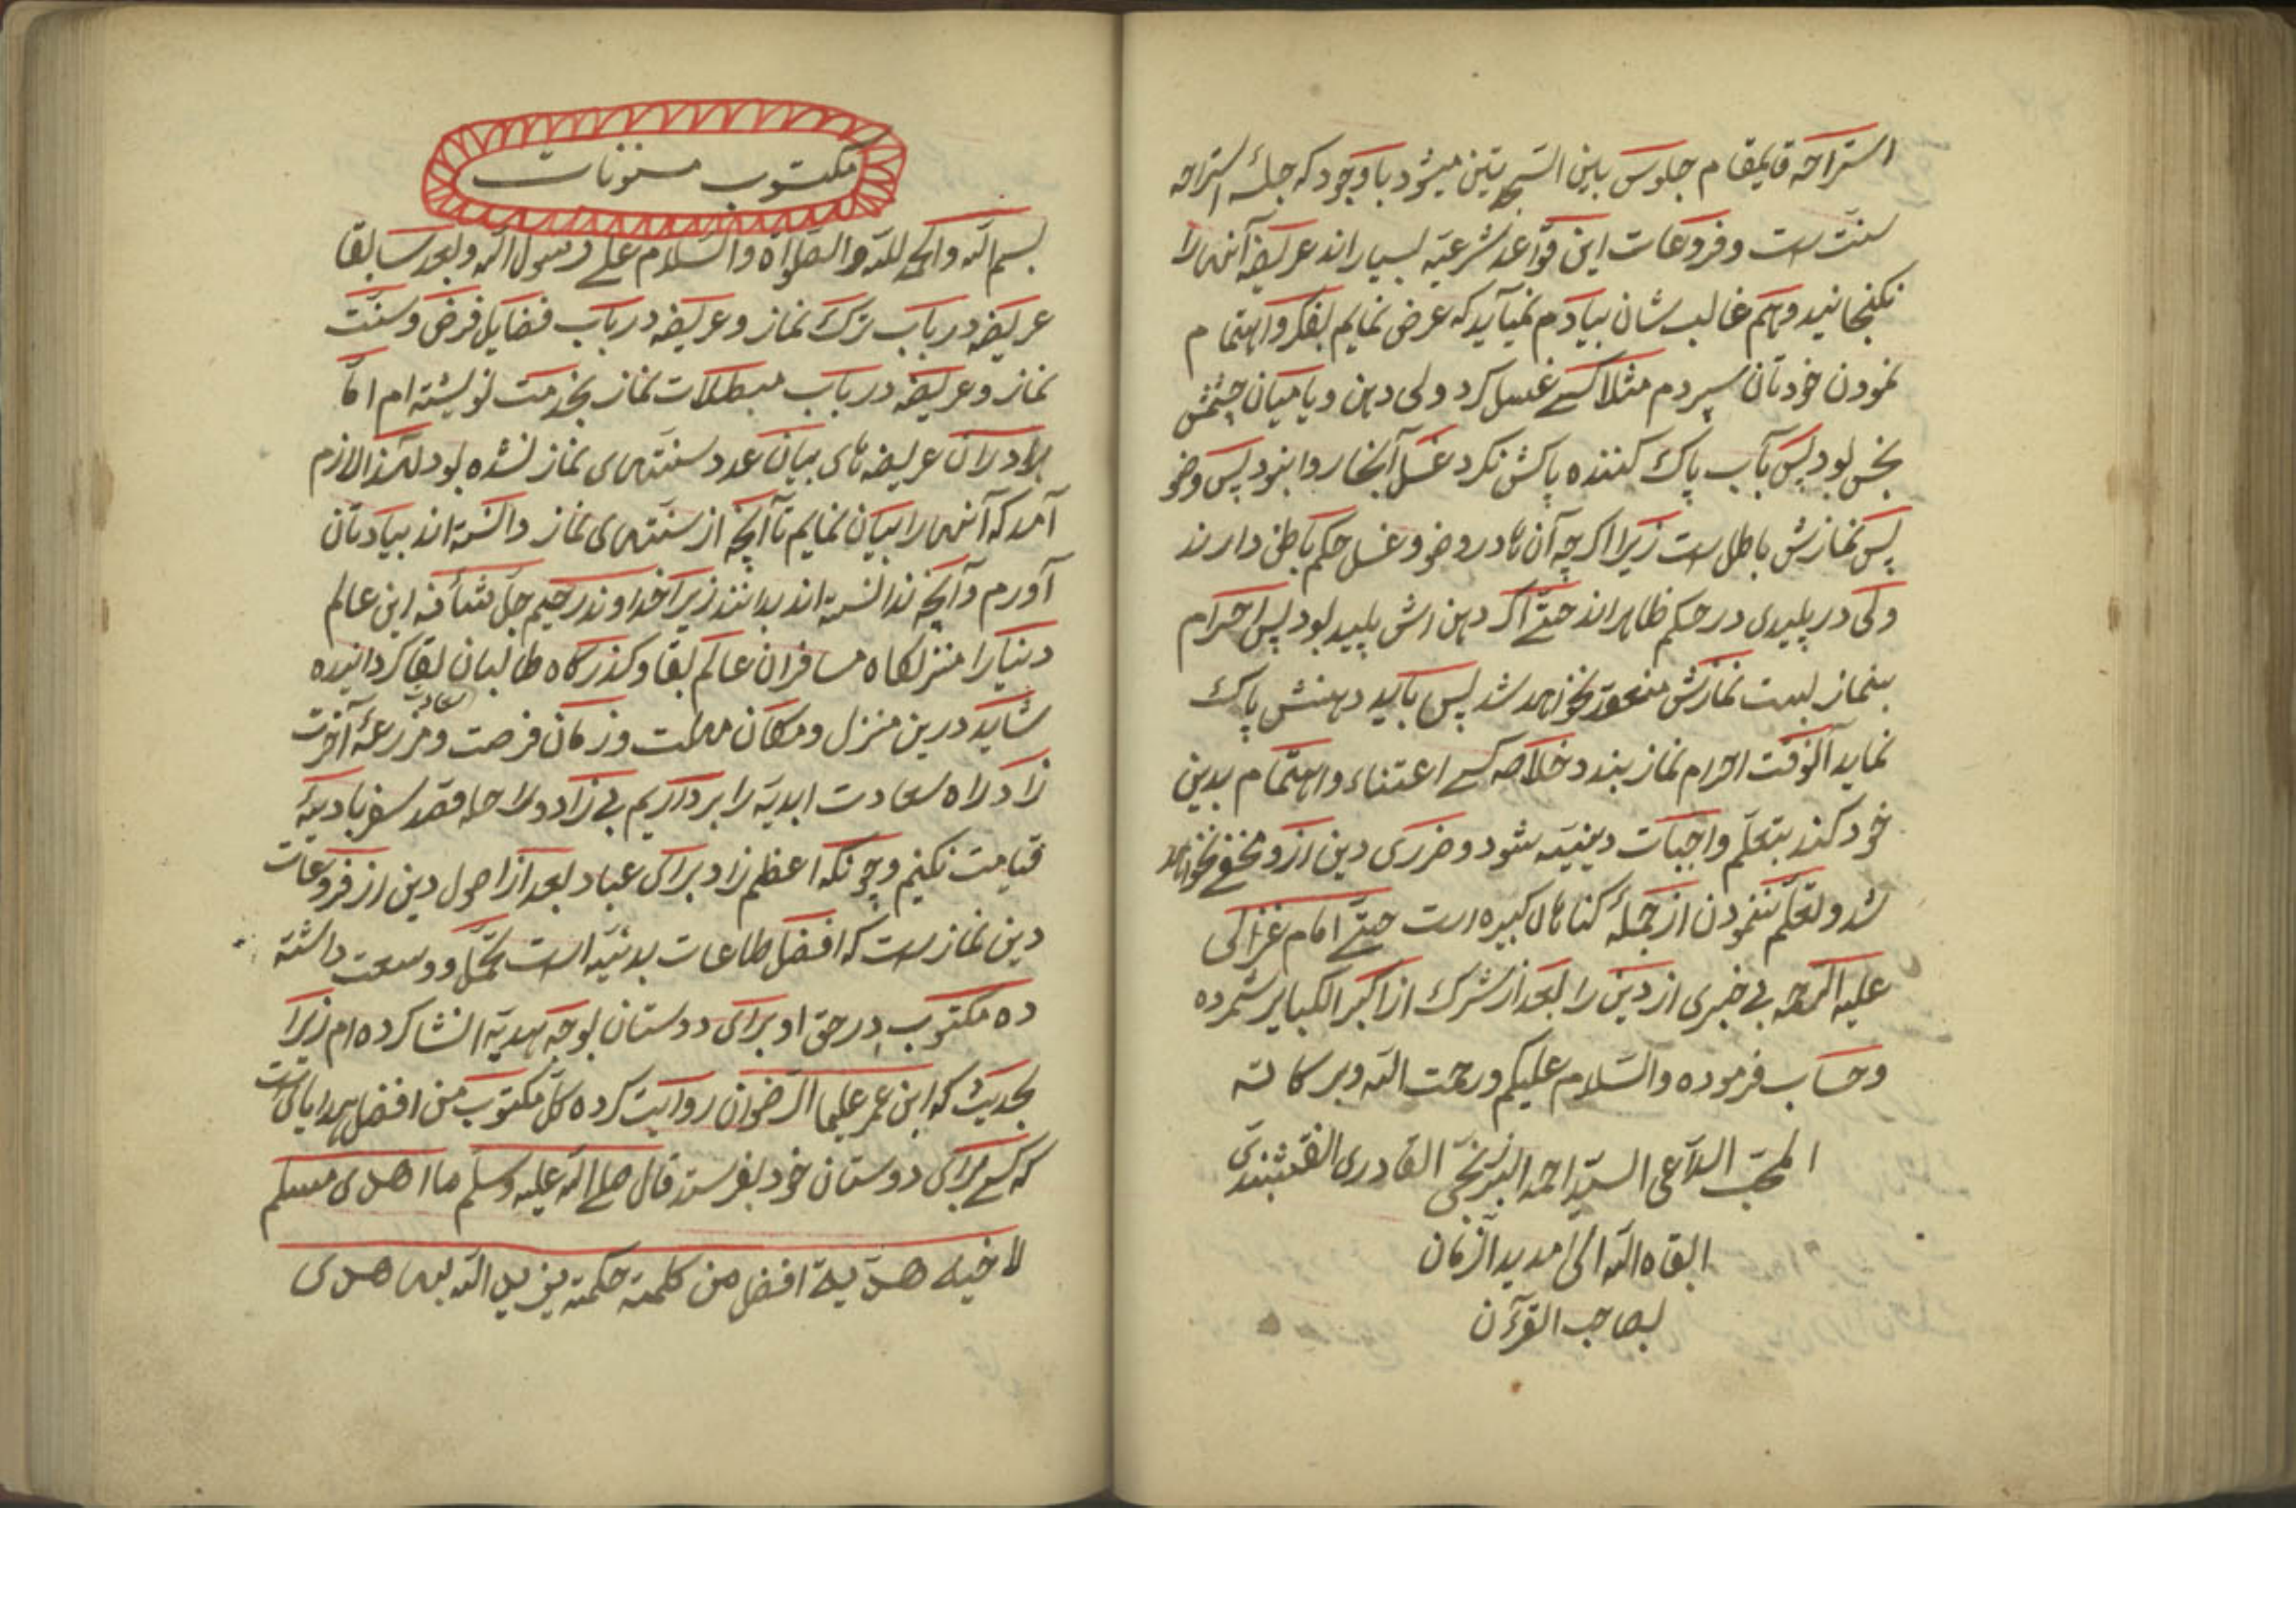 استراحه قایمقام جلوس بین السجدتین میشود با وجود که جلسهٔ استراحه
سنّت ست و فروعات این قواعد شرعیّه بسیاراند عریضه آنها را
نکنجانید و هم غالب شان بیادم نمیآید که عرض نمایم بفکر و اهتمام
نمودن خودتان سپردم مثلا کسے غسل کرد ولی دهن و یا میان چشمش
نجس بود پس بآب پاک کننده پاکش نکرد غسل آنجا روا نبود پس وضو
پس نمازش باطل ست زیرا اکرچه آن ها در وضو و غسل حکم باطن دارند
ولی در پلیدی در حکم ظاهراند حتّے اکر دهن اش پلید بود پس احرام
بنماز بست نمازش منعقد نخواهد شد پس باید دهنش پاک
نماید آنوقت احرام نماز بندد خلاصه کسے اعتناء و اهتمام بدین
خود کند بتعلّم واجبات دینیّه شود و ضرری دین ازو مخفے نخواهد
شد و تعلّم ننمودن از جملهٔ کناهان کبیره است حتّے امام غزالی
علیه الرحمه بے خبری از دین را بعد از شرک از اکبر الکبایر شمرده
و حساب فرموده والسّلام علیکم ورحمت الله وبرکاته
المحبّ الدّاعی السیّد احمد البرزنجی القادری النقشبندی
ابقاه الله الی مدید الزّمان
بصاحب القرآن
مکتوب مسنونات
بسم الله والحمد لله والصلواة والسّلام علے رسول الله وبعد سابقا
عریضه در باب ترک نماز و عریضه در باب فضایل فرض و سنّت
نماز و عریضه در باب مبطلات نماز بخدمت نویشته ام امّا
برادران عریضه های بیان عدد سنّتهای نماز نشده بود لهذا لازم
آمد که آنها را بیان نمایم تا آنچه از سنّتهای نماز دانسته اند بیادتان
آورم و آنچه ندانسته اند بدانند زیرا خداوند رحیم جلّ شأنه این عالم
دنیا را منزلکاه مسافران عالم بقا و کذرکاه طالبان لقا کردانیده
شاید درین منزل و مکان مهلت و زمان فرصت و مزرعهٔ سعادت آخرت
زاد راه سعادت ابدیّه را برداریم بے زاد و راحله قصد سفر بادیهٔ
قیامت نکنیم و چونکه اعظم زاد برای عباد بعد از اصول دین از فروعات
دین نماز ست که افضل طاعات بدنیّه است تحمّل و وسعت داشته
ده مکتوب در حق او برای دوستان بوجه هدیّه انشا کرده ام زیرا
بحدیث که ابن عمر علیهما الرضوان روایت کرده کلّ مکتوب من افضل هدایائی ست
که کسے برای دوستان خود بفرستد قال صلے الله علیه وسلّم ما اهدی مسلم
لاخیه هدیة افضل من کلمة حکمة یزیل الله بها هدی